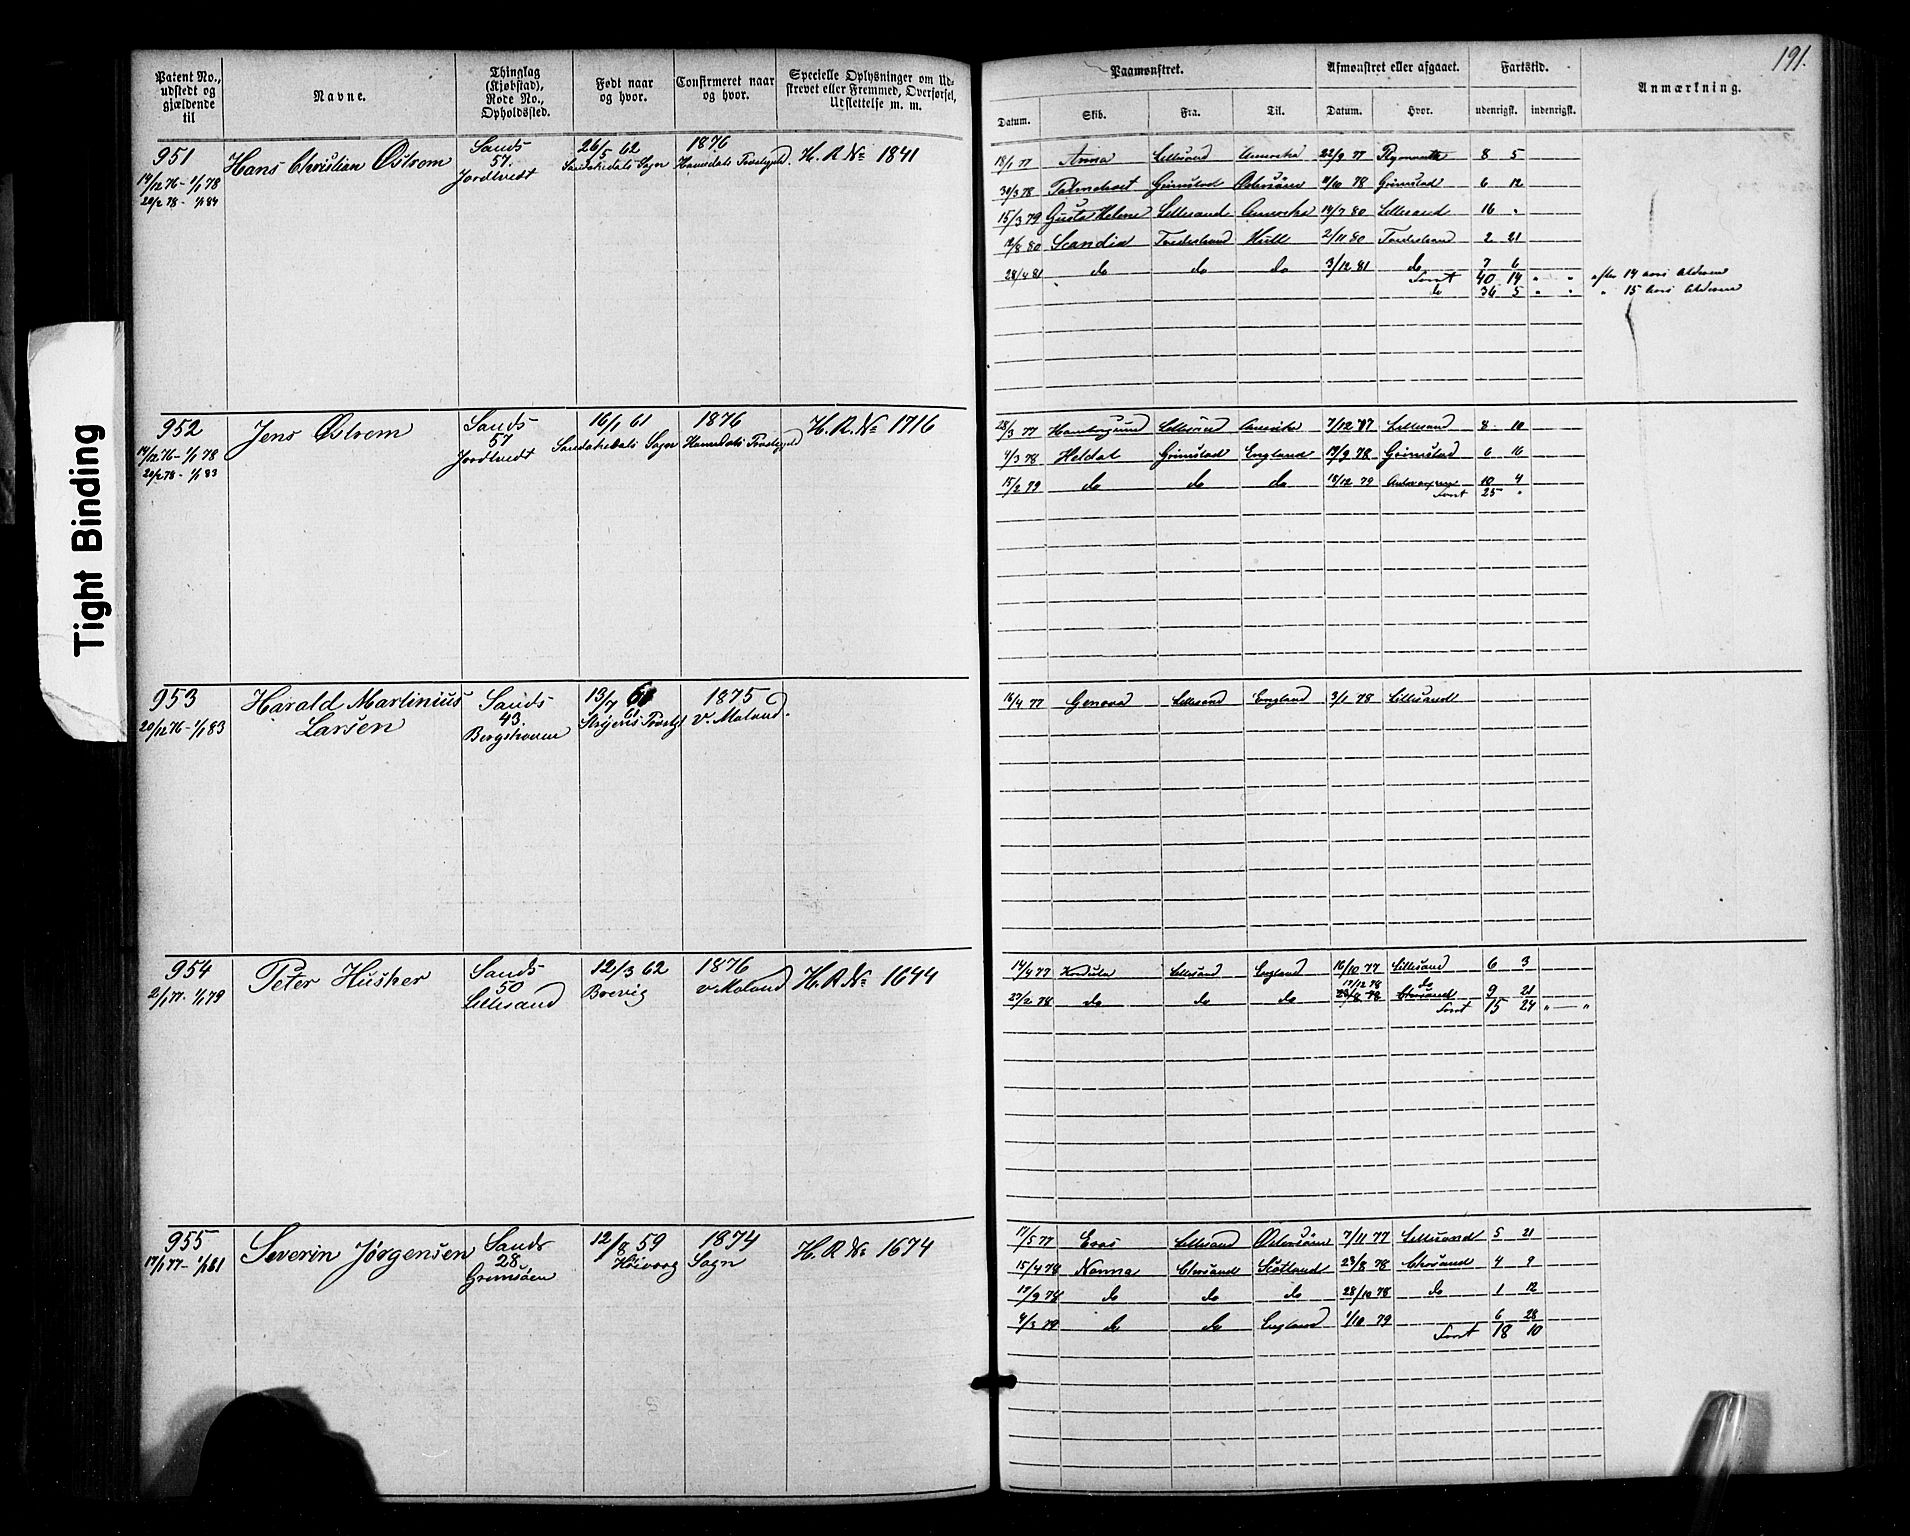 191.
Patent No., udstedt og gjældende til
Navne.
Thinglag (Kjøbstad), Rode No., Opholdssted.
Født naar og hvor.
Confirmeret naar og hvor.
Specielle Oplysninger om Udskrevet eller Fremmed, Overførsel, Utslettelse m. m.
Paamønstret.
Afmønstret eller afgaaet.
Fartstid.
Anmærkning.
Datum. Skib. Fra. Til. Datum. Hvor. udenrigsk. indenrigsk.
Tight Binding
951
14/12 76 - 1/1 78
20/2 78 - 1/1 84
Hans Christian Østrom
Sands
57.
Jordtvedt
26/5 62
Sandøkedals Sogn
1876
Hommdals Prestegjeld
H. R. No 1841
18/1 77 Anna Lillesand Amerika 22/9 77 8 5
30/3 78 Grimstad Østersøen 11/10 78 Grimstad 6 12
15/3 79 Gusta Helene Lillesand Amerika 14/7 80 Lillesand 16 "
12/8 80 Scandia Tvedestrand Hull 2/11 80 Tvedestrand 2 21
28/4 81 do do do 3/12 81 do 7 6
40 14 " " efter 14 aars Alderen
do 36 5 " " " 15 aars Alderen
952
14/12 76 - 1/1 78
20/2 78 - 1/1 83
Jens Østrom
Sands
57
Jordtvedt
16/1 61
Sandøkedals Sogn
1876
Hommdals Prestegjeld
H. R. No 1716
28/3 77 Lillesand Amerika 7/12 77 Lillesand 8 10
4/3 78 Heldal Grimstad England 19/9 78 Grimstad 6 16
15/2 79 do do do 18/12 79 10 4
25 "
953
20/12 76 - 1/1 83
Harald Martinius
Larsen
Sands
43.
Bergshaven
13/7 61
1875
V. Moland.
16/4 77 Genova Lillesand England 3/1 78 Lillesand
954
2/1 77 - 1/1 79
Peter Husher
Sands
50
Lillesand
12/3 62
Brevig
1876
V. Moland
H. R. No 1644
14/4 77 Lillesand England 16/10 77 Lillesand 6 3
17/12 78 do
27/2 78 do do do 23/8 78 Chrsand 9 21
15 24 " "
955
17/1 77 - 1/1 81
Severin Jørgensen
Sands
28
Grimsøen
12/8 59
Høivaag
1874
Sogn
H. R. No 1674
17/5 77 Eros Lillesand Østersøen 7/11 77 Lillesand 5 21
15/4 78 Nanna Chrsand Scotland 23/8 78 Chrsand 4 9
17/9 78 do do do 28/10 78 do 1 12
4/3 79 do do England 1/10 79 6 28
18 10